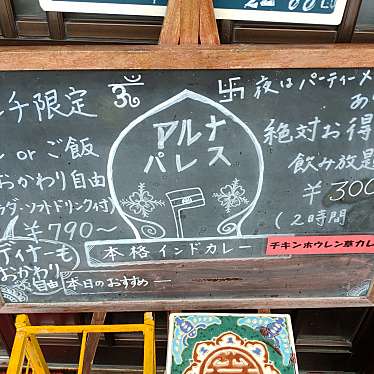 チ限定
or ご飯
おかわり自由
ソフトドリンク付)
¥790〜
ディナーも
おかわり
自由
ॐ
アルナ
パレス
本格インドカレー
本日のおすすめ ー
卐 夜はパーティーメ
絶対お得
飲み放題
¥300
(2時間
チキンホウレン草カレ